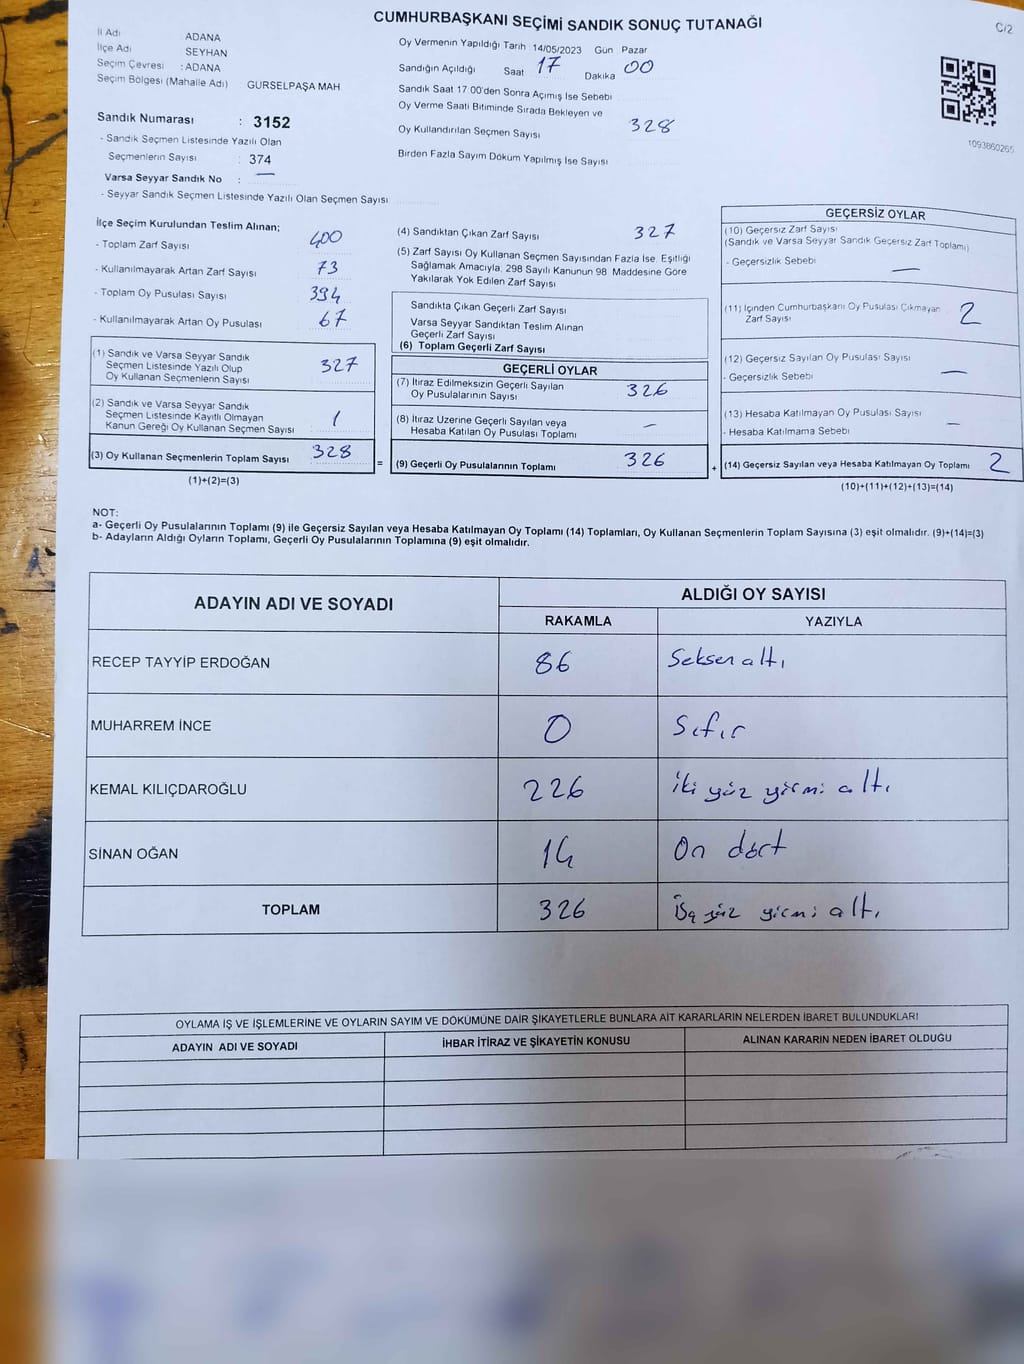 CUMHURBAŞKANI SEÇİMİ SANDIK SONUÇ TUTANAĞI
C/2
İl Adı ADANA
İlçe Adı SEYHAN
Seçim Çevresi : ADANA
Seçim Bölgesi (Mahalle Adı) GÜRSELPAŞA MAH
Sandık Numarası : 3152
- Sandık Seçmen Listesinde Yazılı Olan
Seçmenlerin Sayısı : 374
Varsa Seyyar Sandık No : —
- Seyyar Sandık Seçmen Listesinde Yazılı Olan Seçmen Sayısı
Oy Vermenin Yapıldığı Tarih 14/05/2023 Gün Pazar
Sandığın Açıldığı Saat 17 Dakika 00
Sandık Saat 17.00'den Sonra Açımış İse Sebebi
Oy Verme Saati Bitiminde Sırada Bekleyen ve
Oy Kullandırılan Seçmen Sayısı 328
Birden Fazla Sayım Döküm Yapılmış İse Sayısı
1093860265
İlçe Seçim Kurulundan Teslim Alınan;
- Toplam Zarf Sayısı 400
- Kullanılmayarak Artan Zarf Sayısı 73
- Toplam Oy Pusulası Sayısı 394
- Kullanılmayarak Artan Oy Pusulası 67
(1) Sandık ve Varsa Seyyar Sandık
Seçmen Listesinde Yazılı Olup
Oy Kullanan Seçmenlerin Sayısı 327
(2) Sandık ve Varsa Seyyar Sandık
Seçmen Listesinde Kayıtlı Olmayan
Kanun Gereği Oy Kullanan Seçmen Sayısı 1
(3) Oy Kullanan Seçmenlerin Toplam Sayısı 328
(1)+(2)=(3)
=
(4) Sandıktan Çıkan Zarf Sayısı 327
(5) Zarf Sayısı Oy Kullanan Seçmen Sayısından Fazla İse, Eşitliği
Sağlamak Amacıyla, 298 Sayılı Kanunun 98. Maddesine Göre
Yakılarak Yok Edilen Zarf Sayısı
Sandıkta Çıkan Geçerli Zarf Sayısı
Varsa Seyyar Sandıktan Teslim Alınan
Geçerli Zarf Sayısı
(6) Toplam Geçerli Zarf Sayısı
GEÇERLİ OYLAR
(7) İtiraz Edilmeksizin Geçerli Sayılan
Oy Pusulalarının Sayısı 326
(8) İtiraz Üzerine Geçerli Sayılan veya
Hesaba Katılan Oy Pusulası Toplamı —
(9) Geçerli Oy Pusulalarının Toplamı 326
+
GEÇERSİZ OYLAR
(10) Geçersiz Zarf Sayısı
(Sandık ve Varsa Seyyar Sandık Geçersiz Zarf Toplamı)
- Geçersizlik Sebebi —
(11) İçinden Cumhurbaşkanı Oy Pusulası Çıkmayan
Zarf Sayısı 2
(12) Geçersiz Sayılan Oy Pusulası Sayısı
- Geçersizlik Sebebi —
(13) Hesaba Katılmayan Oy Pusulası Sayısı
- Hesaba Katılmama Sebebi —
(14) Geçersiz Sayılan veya Hesaba Katılmayan Oy Toplamı 2
(10)+(11)+(12)+(13)=(14)
NOT:
a- Geçerli Oy Pusulalarının Toplamı (9) ile Geçersiz Sayılan veya Hesaba Katılmayan Oy Toplamı (14) Toplamları, Oy Kullanan Seçmenlerin Toplam Sayısına (3) eşit olmalıdır. (9)+(14)=(3)
b- Adayların Aldığı Oyların Toplamı, Geçerli Oy Pusulalarının Toplamına (9) eşit olmalıdır.
ADAYIN ADI VE SOYADI ALDIĞI OY SAYISI
RAKAMLA YAZIYLA
RECEP TAYYİP ERDOĞAN 86 Seksen altı
MUHARREM İNCE 0 Sıfır
KEMAL KILIÇDAROĞLU 226 İki yüz yirmi altı
SİNAN OĞAN 14 On dört
TOPLAM 326 Üç yüz yirmi altı
OYLAMA İŞ VE İŞLEMLERİNE VE OYLARIN SAYIM VE DÖKÜMÜNE DAİR ŞİKAYETLERLE BUNLARA AİT KARARLARIN NELERDEN İBARET BULUNDUKLARI
ADAYIN ADI VE SOYADI İHBAR İTİRAZ VE ŞİKAYETİN KONUSU ALINAN KARARIN NEDEN İBARET OLDUĞU